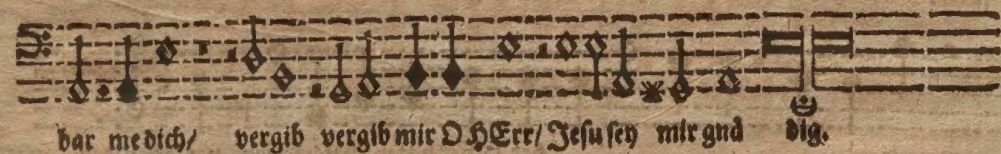 bar me dich/ vergib vergib mir O HErr/ Jesu sey mir gnä dig.